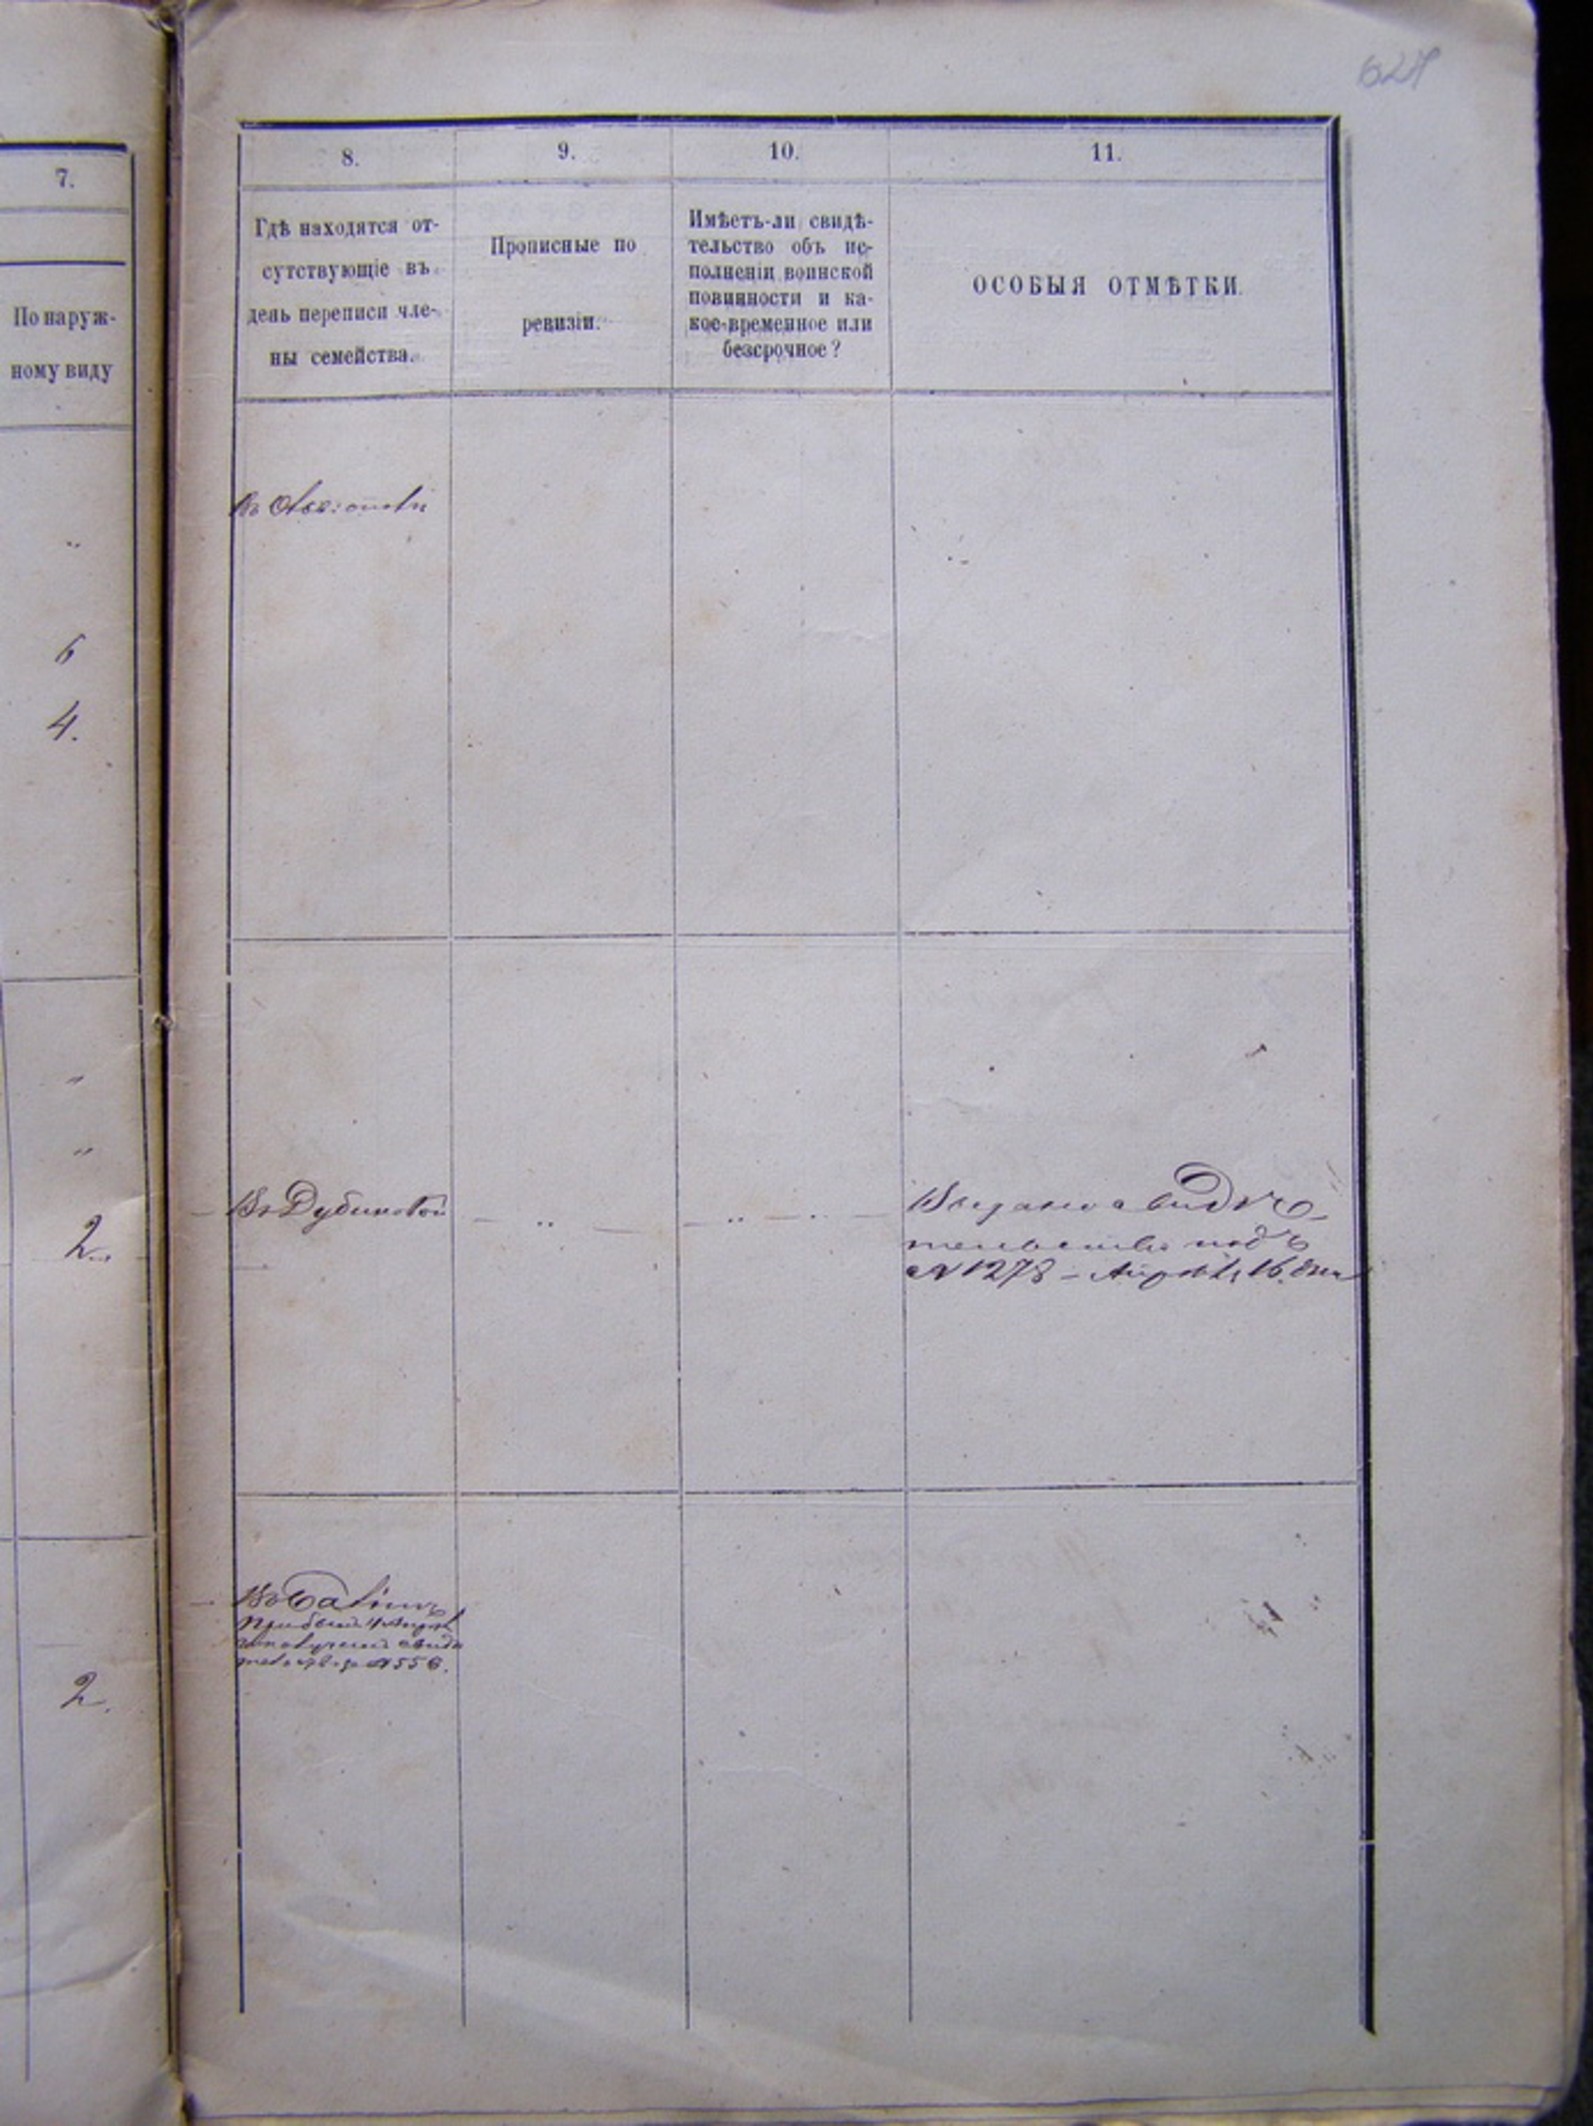 627
7.
По наруж-
ному виду
"
6
4.
"
"
2
2.
8.
9.
10.
11.
Гдѣ находятся от-
сутствующіе въ
день переписи чле-
ны семейства.
Прописные по
ревизіи.
Имѣетъ-ли свидѣ-
тельство объ ис-
полненіи воинской
повинности и ка-
кое-временное или
безсрочное?
ОСОБЫЯ ОТМѢТКИ.
Въ
Въ Дубиновой
Выдано свидѣ-
тельство подъ
№ 1278 - Апрѣля 16 дня
Въ
№ 556.